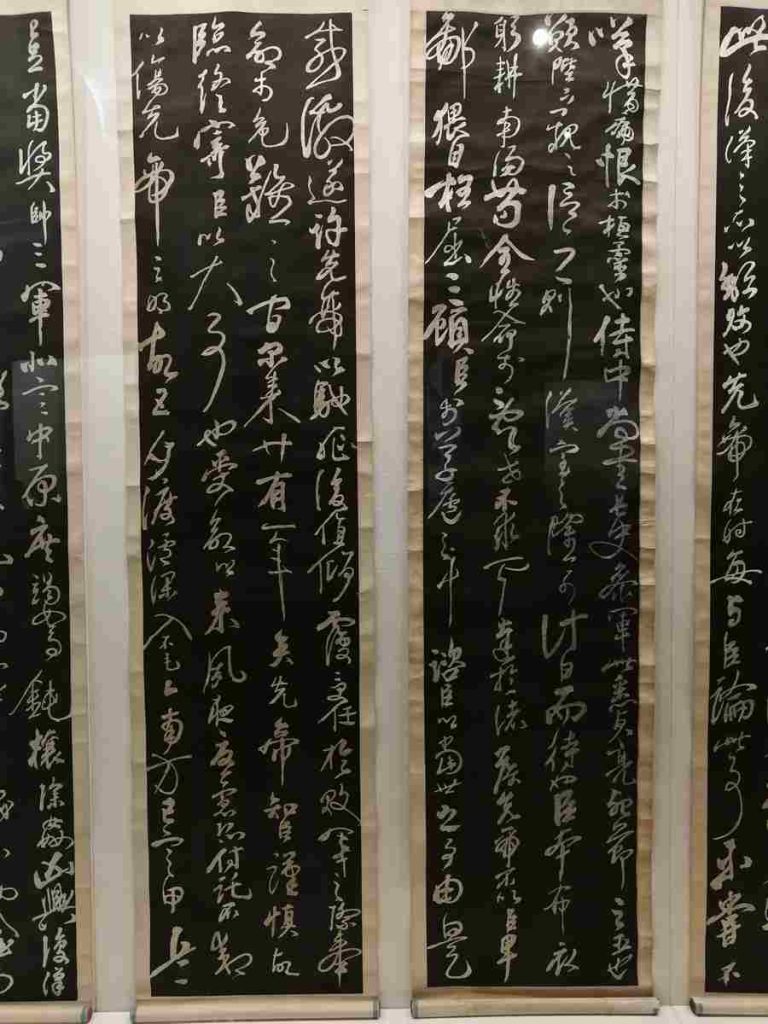 此後漢之所以傾頹也先帝在時每與臣論此事未嘗不
嘆惜痛恨於桓靈也侍中尚書長史參軍此悉貞亮死節之臣也
願陛下親之信之則漢室之隆可計日而待也臣本布衣
躬耕南陽苟全性命於亂世不求聞達於諸侯先帝不以臣卑
鄙猥自枉屈三顧臣於草廬之中諮臣以當世之事由是
感激遂許先帝以驅馳後值傾覆受任於敗軍之際奉
命於危難之間爾來廿有一年矣先帝智臣謹慎故
臨終寄臣以大事也受命以來夙夜憂慮恐付託不效
以傷先帝之明故五月渡瀘深入不毛今南方已定甲兵
足當獎帥三軍北定中原庶竭駑鈍攘除姦凶興復漢